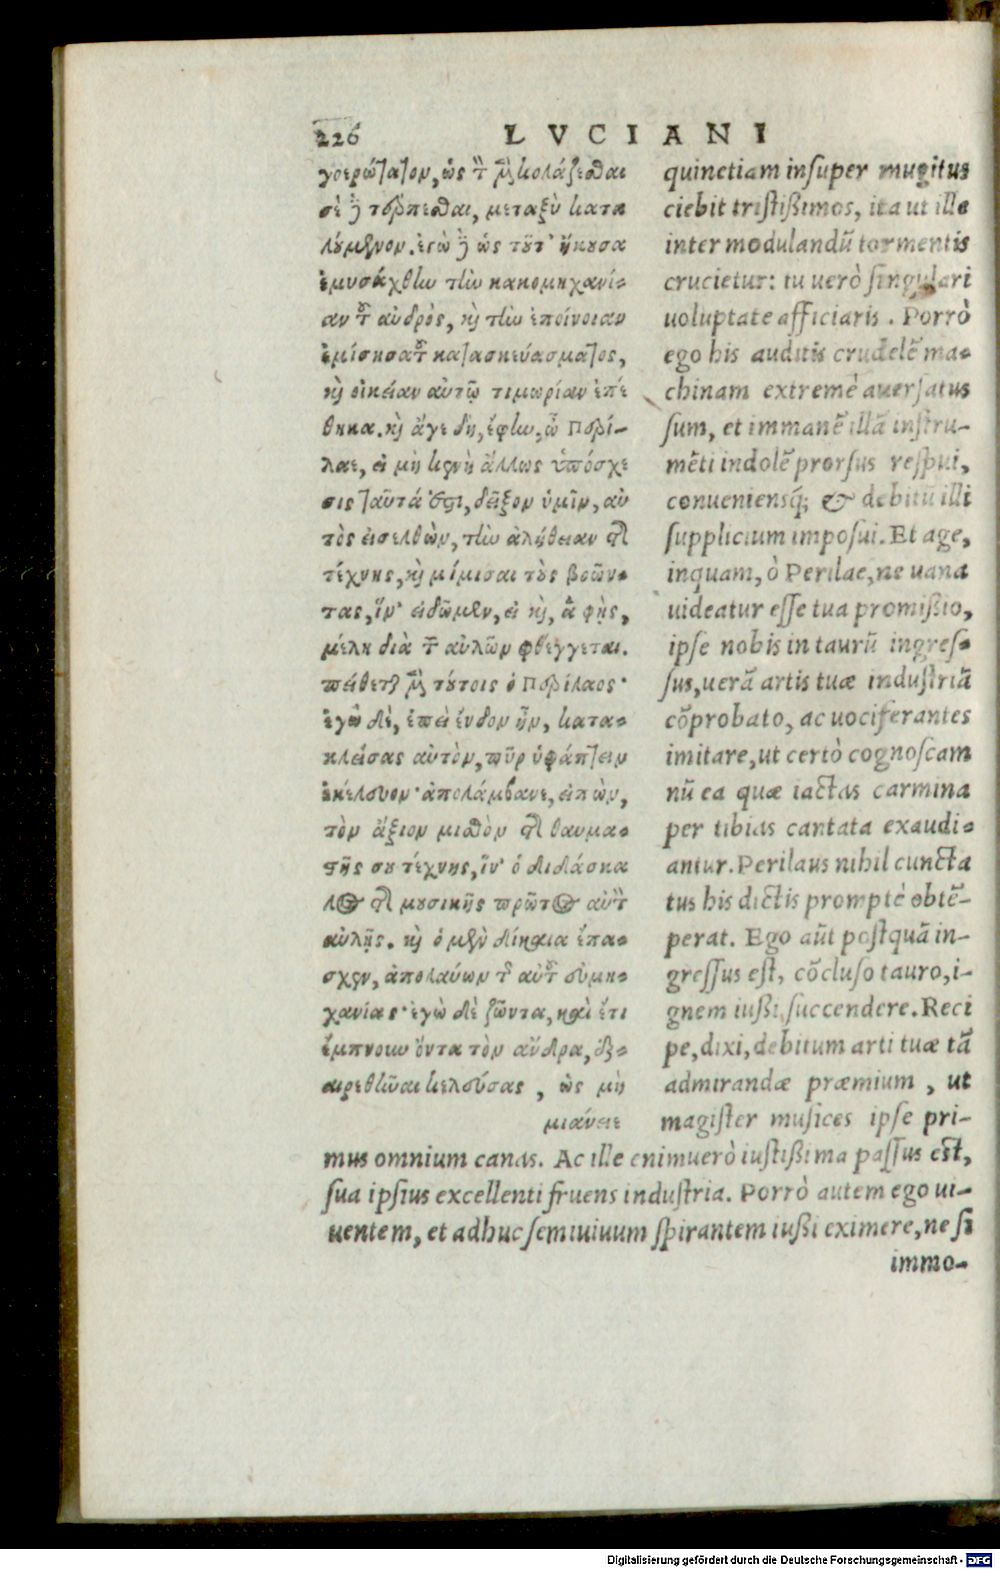 226 LVCIANI
γοερώτατον, ὡς τὸν μὲν κολάζεσθαι
σὲ δὲ τέρπεσθαι, μεταξὺ κατα
λούμενον. ἐγὼ δὲ ὡς τοῦτ' ἤκουσα
ἐμυσάχθην τὴν κακομηχανί-
αν τοῦ ἀνδρὸς, καὶ τὴν ἐπίνοιαν
ἐμίσησα τοῦ κατασκευάσματος,
καὶ οἰκείαν αὐτῷ τιμωρίαν ἐπέ
θηκα. καὶ ἄγε δὴ, ἔφην, ὦ Περί-
λαε, εἰ μὴ κενὴ ἄλλως ὑπόσχε
σις ταῦτά ἐστι, δεῖξον ἡμῖν, αὐ
τὸς εἰσελθὼν, τὴν ἀλήθειαν τῆς
τέχνης, καὶ μίμησαι τοὺς βοῶν-
τας, ἵν' εἰδῶμεν, εἰ καὶ, ἃ φῂς,
μέλη διὰ τῶν αὐλῶν φθέγγεται.
πείθεται μὲν τούτοις ὁ Περίλαος·
ἐγὼ δὲ, ἐπεὶ ἔνδον ἦν, κατα-
κλείσας αὐτὸν, πῦρ ὑφάπτειν
ἐκέλευον· ἀπολάμβανε, εἰπὼν,
τὸν ἄξιον μισθὸν τῆς θαυμα-
στῆς σου τέχνης, ἵν' ὁ διδάσκα
λος τῆς μουσικῆς πρῶτος αὐτὸς
αὐλῇς. καὶ ὁ μὲν δίκαια ἔπα-
σχεν, ἀπολαύων τῆς αὐτοῦ εὐμη-
χανίας· ἐγὼ δὲ ζῶντα, καὶ ἔτι
ἔμπνουν ὄντα τὸν ἄνδρα, ἐξ-
αιρεθῆναι κελεύσας, ὡς μὴ
μιάνειε
quinetiam insuper mugitus
ciebit tristißimos, ita ut ille
inter modulandū tormentis
crucietur: tu uerò singulari
uoluptate afficiaris. Porrò
ego his auditis crudelē ma-
chinam extremè auersatus
sum, et immanē illā instru-
mēti indolē prorsus respui,
conueniensq́; & debitū illi
supplicium imposui. Et age,
inquam, ò Perilae, ne uana
uideatur esse tua promißio,
ipse nobis in taurū ingres-
sus, uerā artis tuæ industriā
cōprobato, ac uociferantes
imitare, ut certò cognoscam
nū ea quæ iactas carmina
per tibias cantata exaudi-
antur. Perilaus nihil cuncta
tus his dictis promptè obtē-
perat. Ego aūt postquā in-
gressus est, cōcluso tauro, i-
gnem iußi succendere. Reci
pe, dixi, debitum arti tuæ tā
admirandæ præmium, ut
magister musices ipse pri-
mus omnium canas. Ac ille enimuerò iustißima passus est,
sua ipsius excellenti fruens industria. Porrò autem ego ui-
uentem, et adhuc semiuiuum spirantem iußi eximere, ne si
immo-
Digitalisierung gefördert durch die Deutsche Forschungsgemeinschaft - DFG